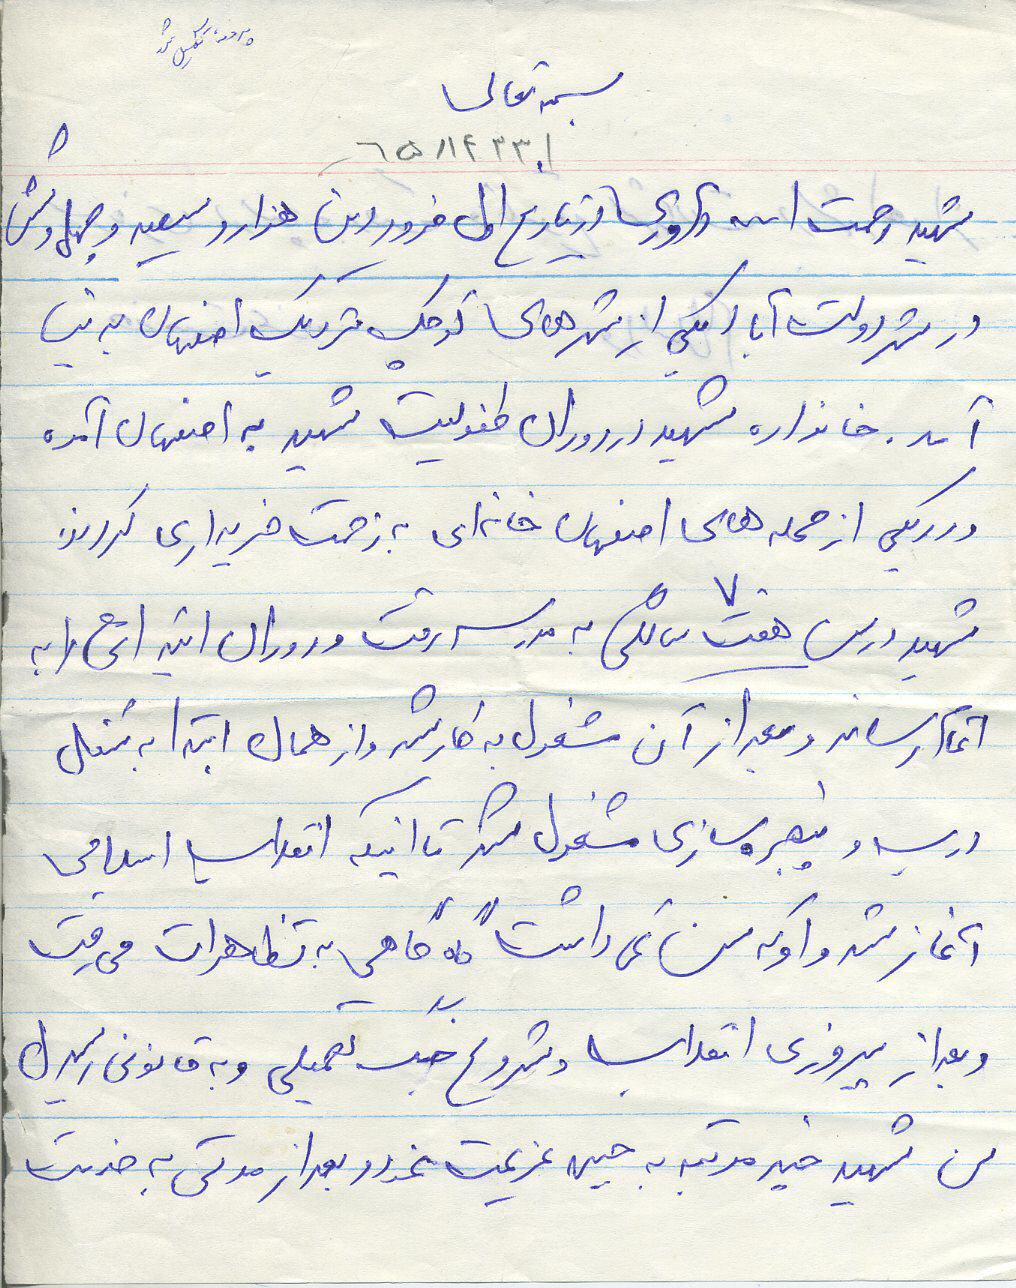 بسمه تعالی
۶۵۸۱۴۳۳۱
شهید رحمت اله داوری در تاریخ اول فروردین هزار و سیصد و چهل و شش
در شهر دولت آباد یکی از شهرهای کوچک نزدیک اصفهان به دنیا
آمد. خانواده شهید در دوران طفولیت شهید به اصفهان آمده
و در یکی از محله های اصفهان خانه ای به زحمت خریداری کردند.
شهید در سن هفت ۷ سالگی به مدرسه رفت و دوران ابتدائی را به
اتمام رساند و بعد از آن مشغول به کار شد و از همان ابتدا به شغل
درب و پنجره سازی مشغول شد تا اینکه انقلاب اسلامی
آغاز شد و او که سن کمی داشت گاه گاهی به تظاهرات می رفت
و بعد از پیروزی انقلاب و شروع جنگ تحمیلی و به قانونی رسیدن
سن شهید چند مرتبه به جبهه عزیمت نمود و بعد از مدتی به خدمت